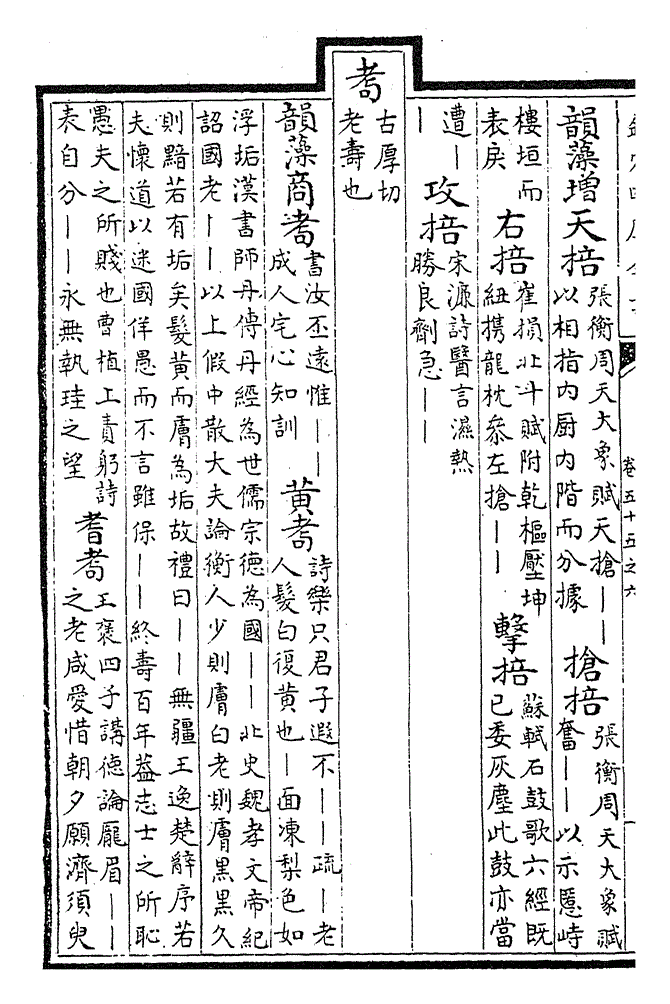 卷五十五之六
韻藻增天掊
張衡周天大象賦天搶——
以相指内厨内階而分據
搶掊
張衡周天大象賦
奮——以示慝峙
樓垣而
表戾
右掊
崔損北斗賦附乾樞壓坤
紐携龍枕參左搶——
擊掊
蘇軾石鼓歌六經既
已委灰塵此鼓亦當
遭—
—
攻掊
宋濂詩醫言濕熱
勝良劑急——
耉
古厚切
老壽也
韻藻商耉
書汝丕遠惟——
成人宅心知訓
黄耉
詩樂只君子遐不——疏—老
人髮白復黄也—面凍梨色如
浮垢漢書師丹傳丹經為世儒宗德為國——北史魏孝文帝紀
詔國老——以上假中散大夫論衡人少則膚白老則膚黑黑久
則黯若有垢矣髮黄而膚為垢故禮曰——無疆王逸楚辭序若
夫懷道以迷國佯愚而不言雖保——終壽百年葢志士之所恥
愚夫之所賤也曹植上責躬詩
表自分——永無執珪之望
耆耉
王褒四子講德論厖眉——
之老咸愛惜朝夕願濟須臾